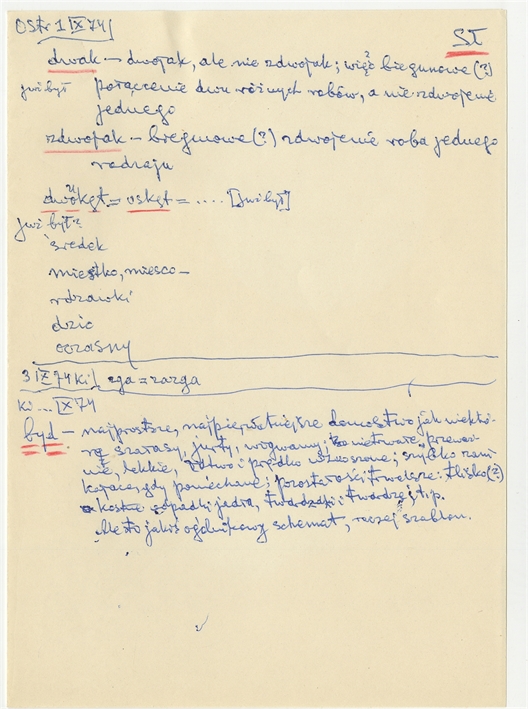 Ostr 1 IX 74
SŁ
dwak – dwojak, ale nie zdwojak; więc biegunowe (?)
już był połączenie dwu różnych robów, a nie zdwojenie
jednego
zdwojak – biegunowe (?) zdwojenie roba jednego
rodzaju
dwukąt = oskąt = .... [już był]
już był?
środek
miestko, miesco –
rdzawki
dzic
wrasny
3 IX 74 Ki
ega = zarga
Ki ... IX 74
byd – najprostsze, najpierwotniejsze domostwo jak niektó-
re szałasy, jurty, wigwamy; bo nietrwałe, przeważ-
nie, lekkie, łatwo i prędko wznoszone; szybko zani-
kające, gdy poniechane; pozostałości trwalsze:
kostne odpadki jadła, i t.p.
Ale to jakiś ogólnikowy schemat, raczej szablon.